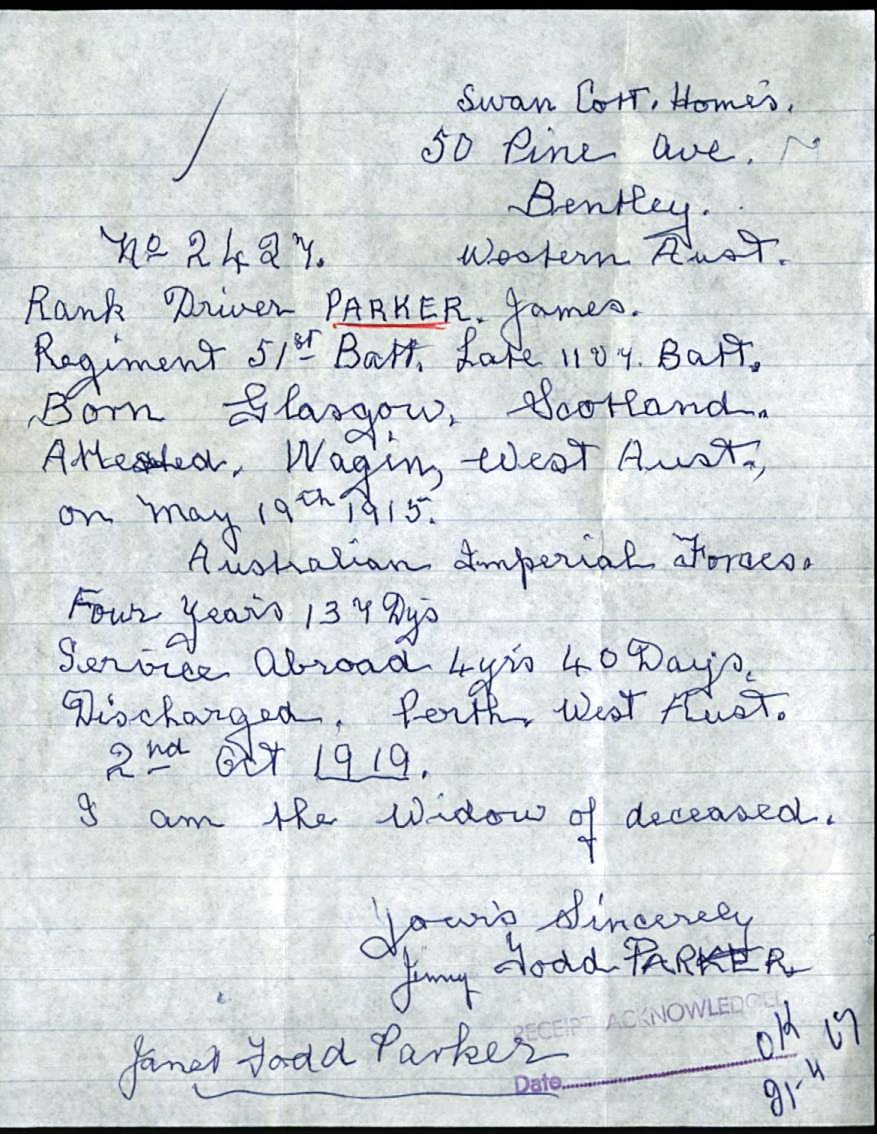 Swan Cott. Homes.
50 Pine Ave.
Bentley.
No 2427.
Western Aust.
Rank Driver PARKER. James.
Regiment 51st Batt. Late 11 Batt.
Born Glasgow, Scotland.
Attested, Wagin, West Aust.,
on May 19th 1915.
Australian Imperial Forces.
Four Years 137 Dys
Service Abroad 4yrs 40 Days.
Discharged. Perth, West Aust.
2nd Oct 1919.
I am the Widow of deceased.
Yours Sincerely
Jinny Todd PARKER
RECEIPT ACKNOWLEDGED
Janet Todd Parker
OK
Date
21-4 67